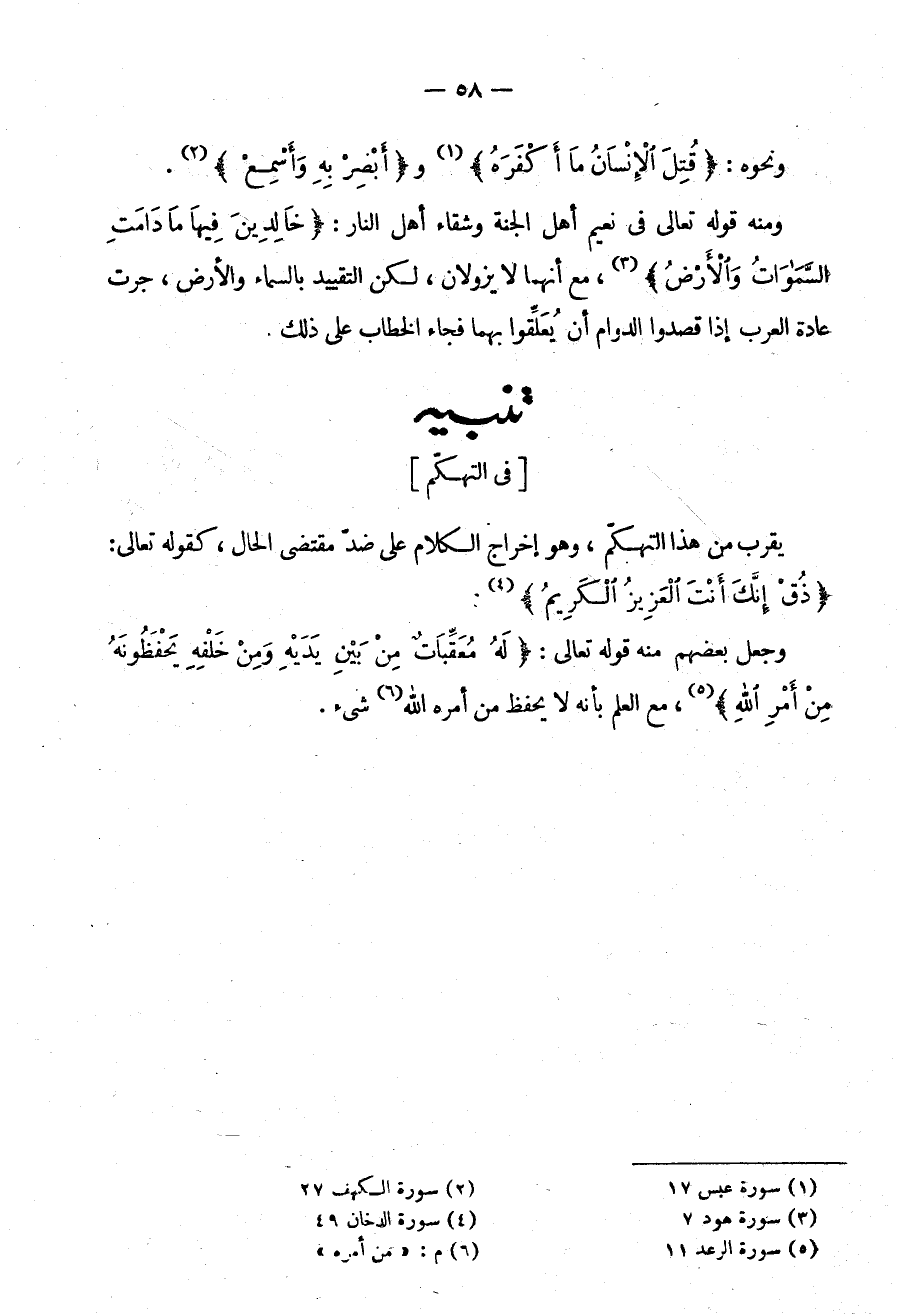 — ٥٨ —
ونحوه : ﴿ قُتِلَ ٱلْإِنْسَانُ مَا أَكْفَرَهُ ﴾ (١) و﴿ أَبْصِرْ بِهِ وَأَسْمِعْ ﴾ (٢) .
ومنه قوله تعالى فى نعيم أهل الجنة وشقاء أهل النار : ﴿ خَالِدِينَ فِيهَا مَا دَامَتِ
السَّمٰوَاتُ وَٱلْأَرْضُ ﴾ (٣) ، مع أنهما لا يزولان ، لكن التقييد بالسماء والأرض ، جرت
عادة العرب إذا قصدوا الدوام أن يُعَلِّقوا بهما فجاء الخطاب على ذلك .
تنبيه
[ فى التهكّم ]
يقرب من هذا التهكّم ، وهو إخراج الكلام على ضدّ مقتضى الحال ، كقوله تعالى:
﴿ ذُقْ إِنَّكَ أَنْتَ ٱلْعَزِيزُ ٱلْكَرِيمُ ﴾ (٤) :
وجعل بعضهم منه قوله تعالى : ﴿ لَهُ مُعَقِّبَاتٌ مِنْ بَيْنِ يَدَيْهِ وَمِنْ خَلْفِهِ يَحْفَظُونَهُ
مِنْ أَمْرِ ٱللهِ ﴾ (٥) ، مع العلم بأنه لا يحفظ من أمره الله (٦) شىء .
(١) سورة عبس ١٧
(٢) سورة الكهف ٢٧
(٣) سورة هود ٧
(٤) سورة الدخان ٤٩
(٥) سورة الرعد ١١
(٦) م : « من أمره »